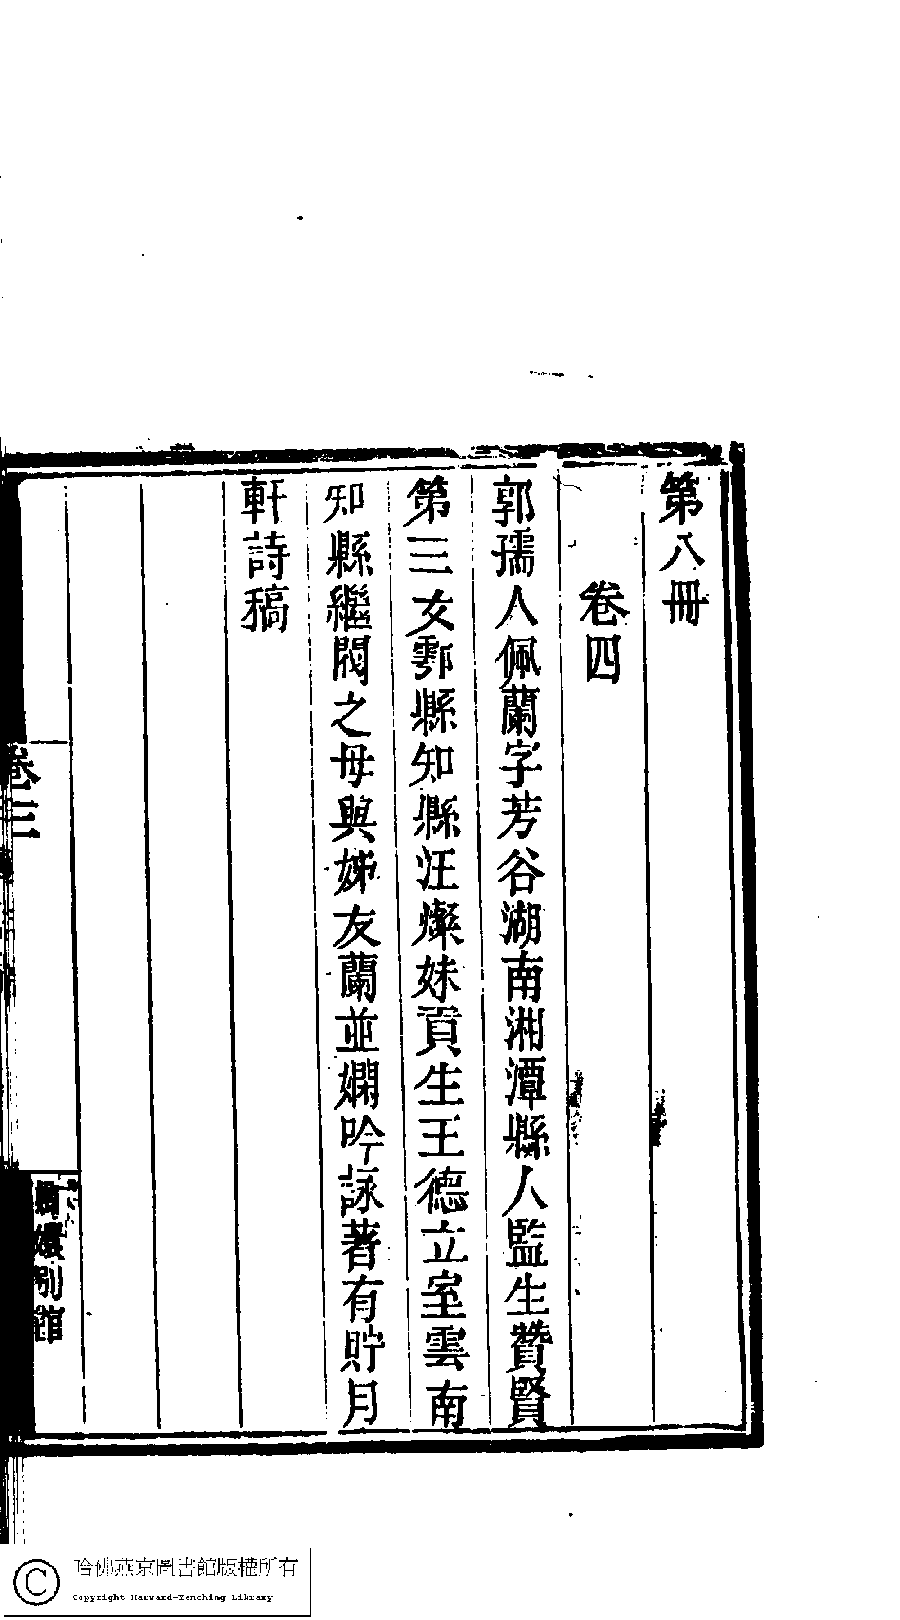 第八冊
卷四
郭孺人佩蘭字芳谷湖南湘潭縣人監生贊賢
第三女鄠縣知縣汪燦妹貢生王德立室雲南
知縣繼閥之母與姊友蘭並嫻吟詠著有貯月
軒詩稿
卷三
嬛別館
哈佛燕京圖書館版權所有
Copyright Harvard-Yenching Library